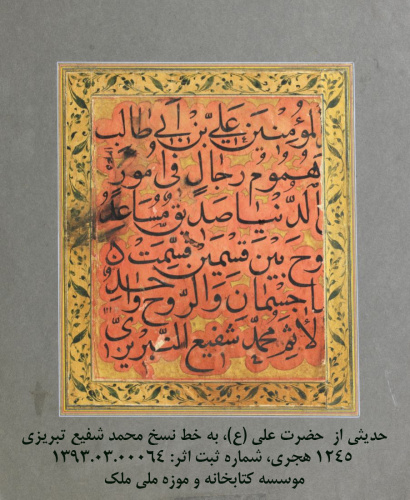 المؤمنین علي بن ابي طالب
هموم رجال في امور
الدنیا صدیق مساعد
روح بین قسمین قسمت
جسمان والروح واحد
محمد شفیع التبریزي
حدیثی از حضرت علی (ع)، به خط نسخ محمد شفیع تبریزی
۱۲٤٥ هجری، شماره ثبت اثر: ۱۳۹۳.۰۳.۰۰۰٦٤
موسسه کتابخانه و موزه ملی ملک